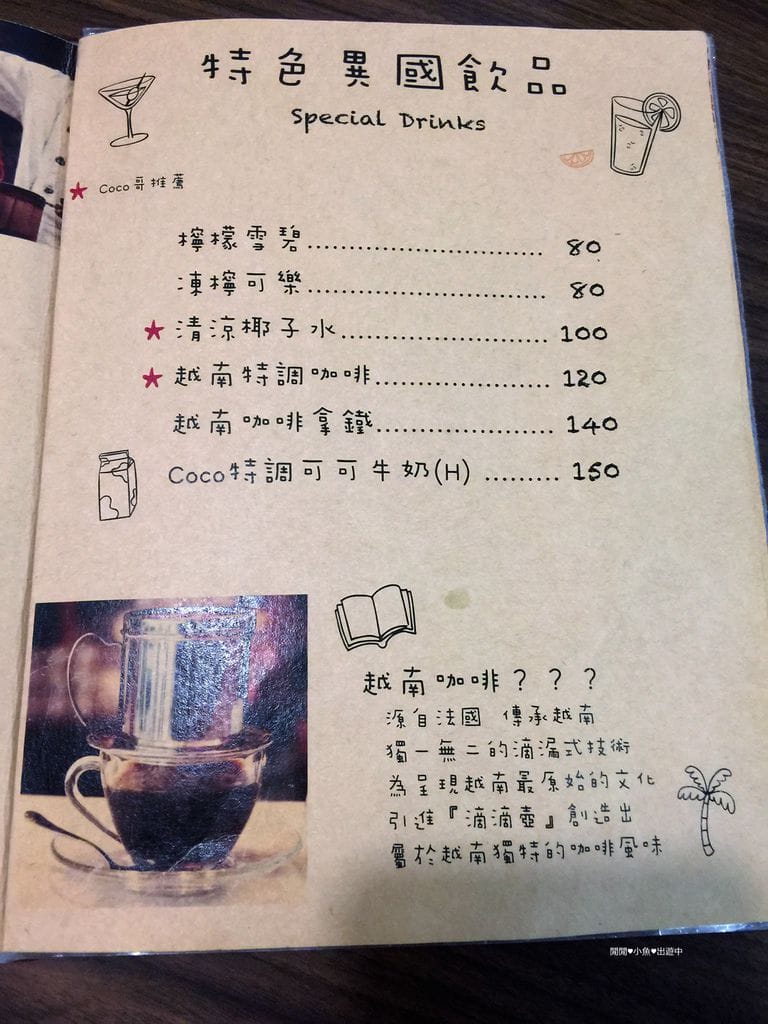 特色異國飲品
Special Drinks
★ Coco哥推薦
檸檬雪碧........................... 80
凍檸可樂........................... 80
★ 清涼椰子水........................ 100
★ 越南特調咖啡.................... 120
越南咖啡拿鐵.................... 140
Coco特調可可牛奶(H) ......... 150
越南咖啡？？？
源自法國 傳承越南
獨一無二的滴漏式技術
為呈現越南最原始的文化
引進『滴滴壺』創造出
屬於越南獨特的咖啡風味
閒閒♥小魚♥出遊中